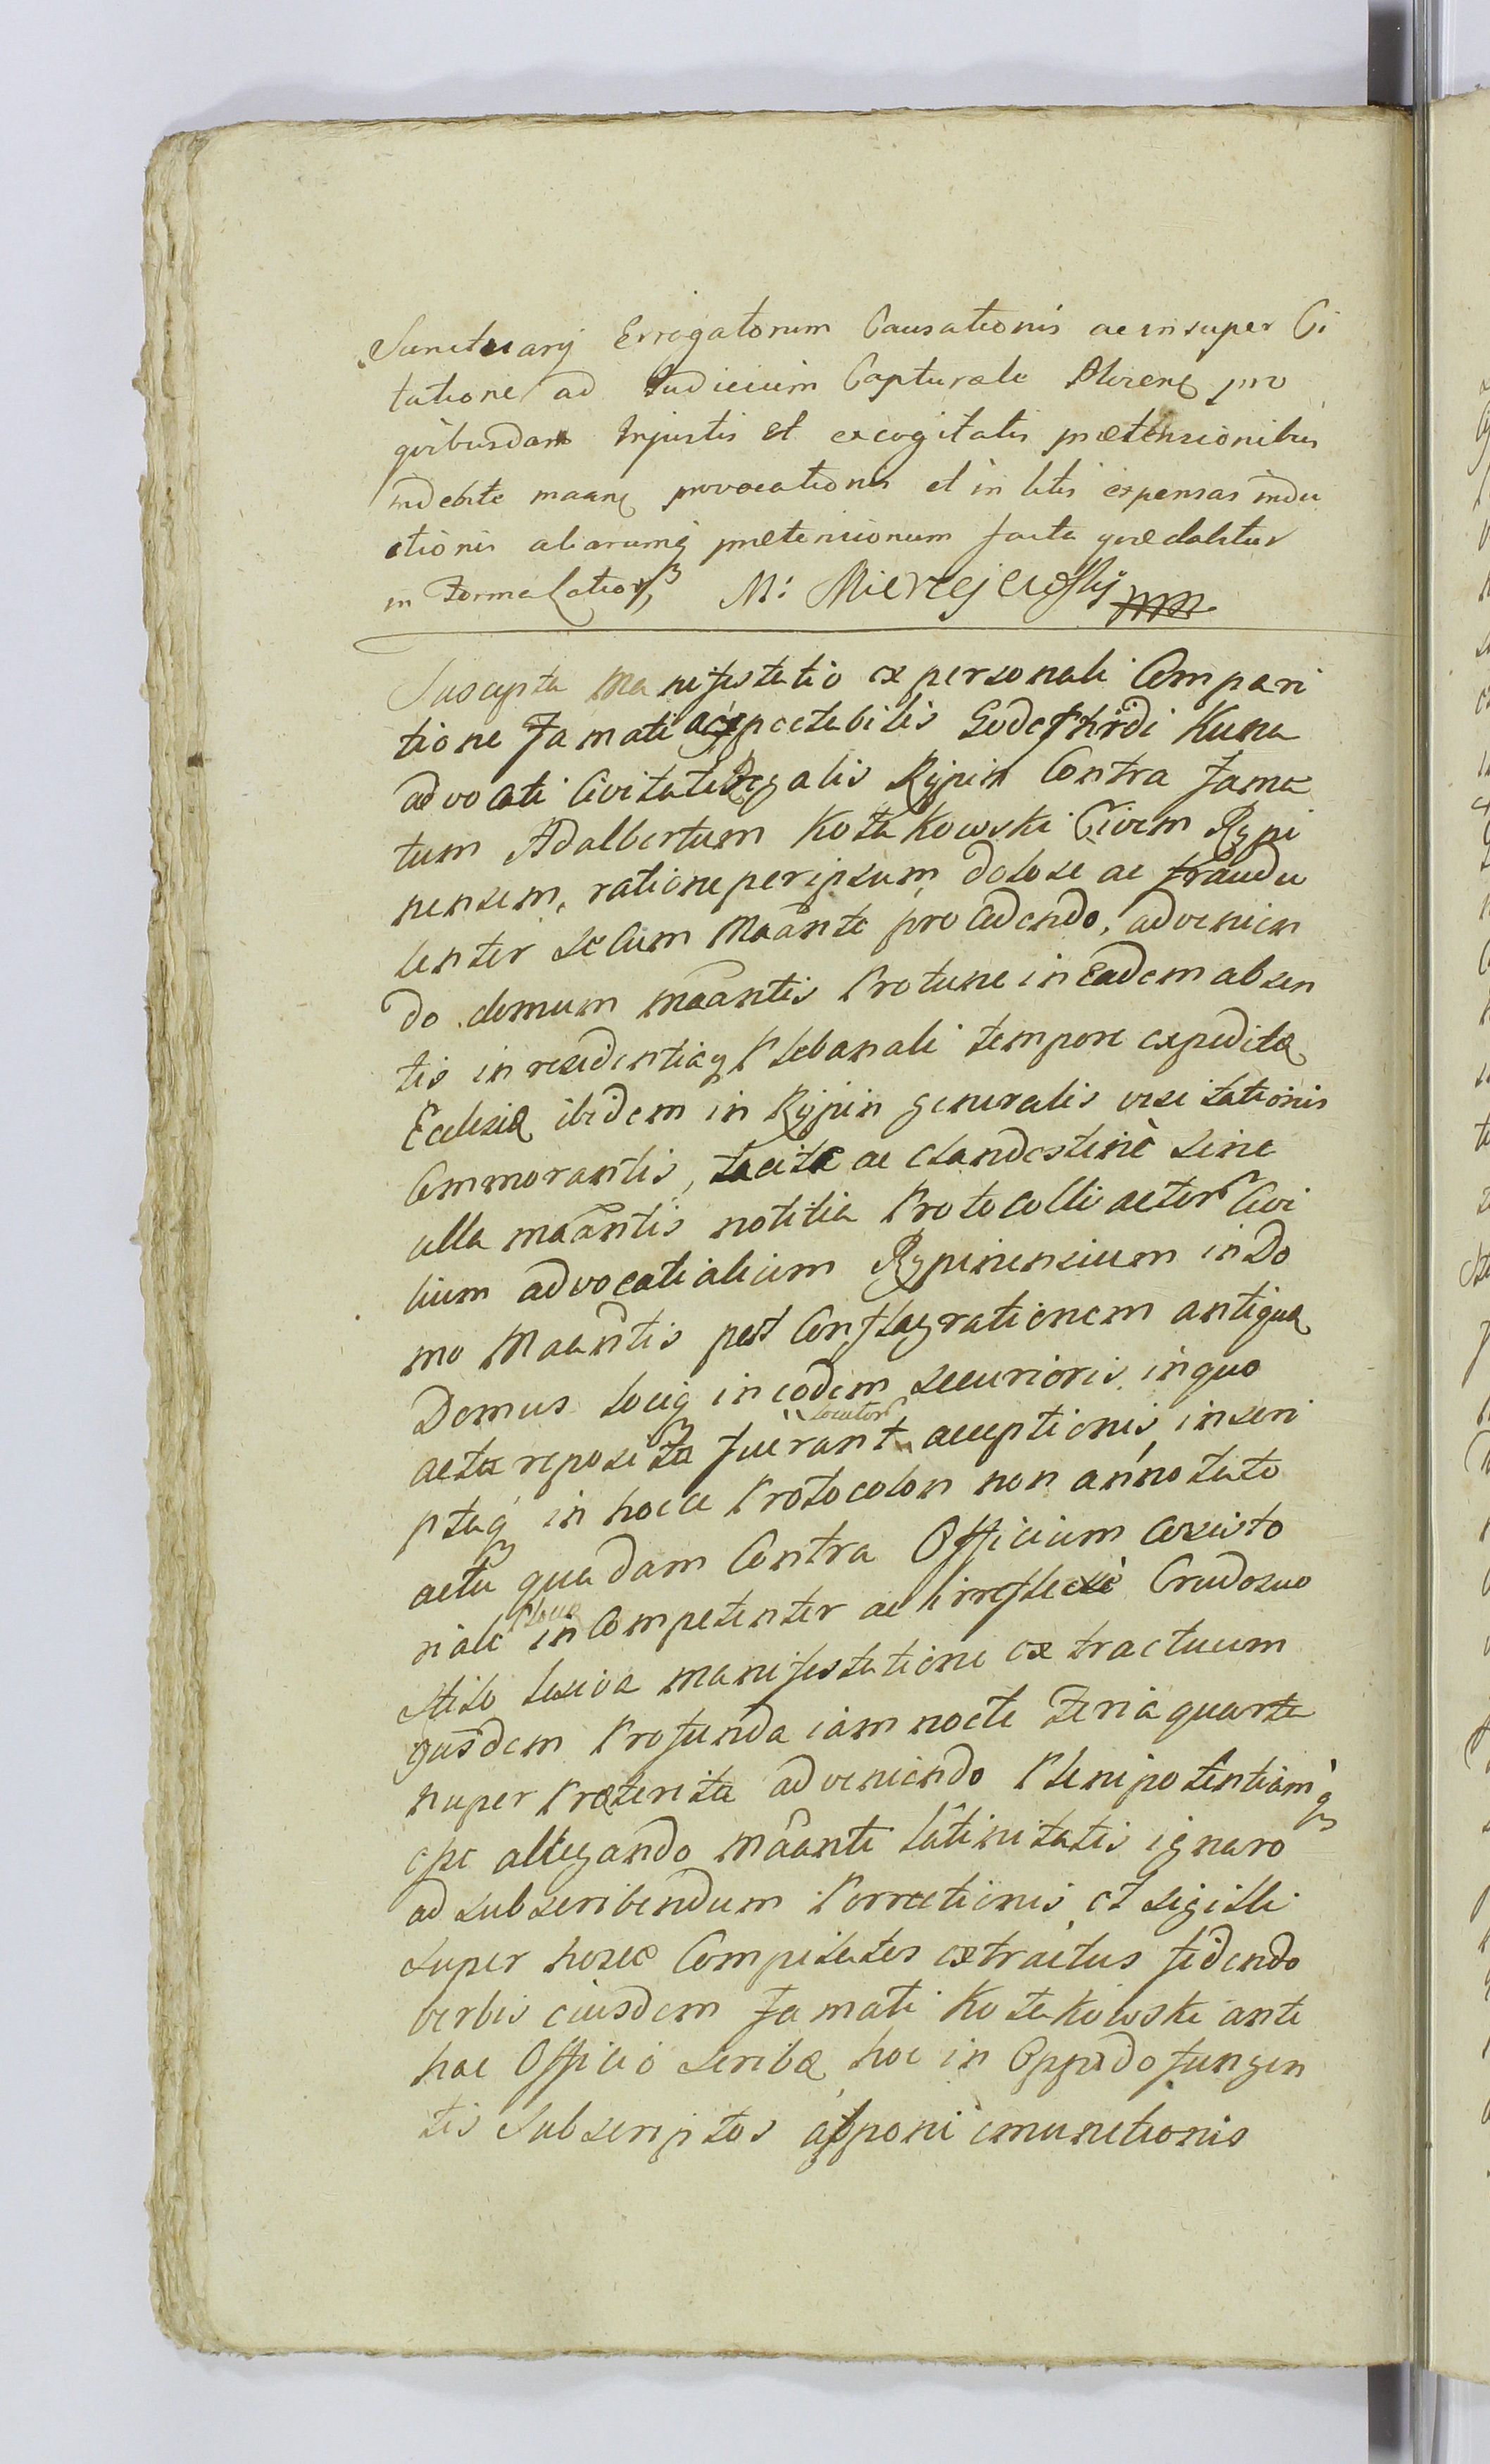 Sanctuarij Errogatorum Causationis ac insuper Ci
tatione ad Judicium Capturale pro
qvibusdam Injustis et excogitatis prætensionibus
indebite maanę provocationis et in litis expensas indu
ctionis aliarumq prætensionum facta quæ dabitur
in Forma Latiori M: Mierzejewskij mp
Suscepta Manifestatio ex personali Compari
tione Famati ac spectabilis Godefridi Kuna
advocati Civitatis Regalis Rypin Contra Fama
tum Adalbertum Kotkowski Civem Rypi
nensem, ratione per ipsum dolose ac fraudu
lenter secum Maante procedendo, advenien
do domum maantis Protunc in Eadem absen
tis in residentiaq Plebanali tempore expeditæ
Eclesiæ ibidem in Rypin generalis visitationis
Commorantis, tacite ac clandestinè sine
ulla maantis notitia Protocolli actor Civi
lium advocatialium Rypinensium in Do
mo Maantis post Conflagrationem antiquæ
Domus lociq in eodem securioris in quo
acta reposita fuerant locator acceptionis inscri
ptaq in hocce Protocolon non annotato
actu quadam Contra Officium Consisto
riale Plocen inCompetenter ac irreflexè Crudo suo
stilo laesiva manifestatione extractuum
ejusdem Profunda iam nocte Feria quarta
nuper Præterita adveniendo Plenipotentiamq
 allegando Maanti latinitatis ignaro
ad subscribendum Porrectionis et sigilli
super hosce Compilatos extractus fidendo
verbis eiusdem Famati Kotkowski ante
hac Officio scribæ hoc in Oppido fungen
tis Subscriptos apponi emunctionis